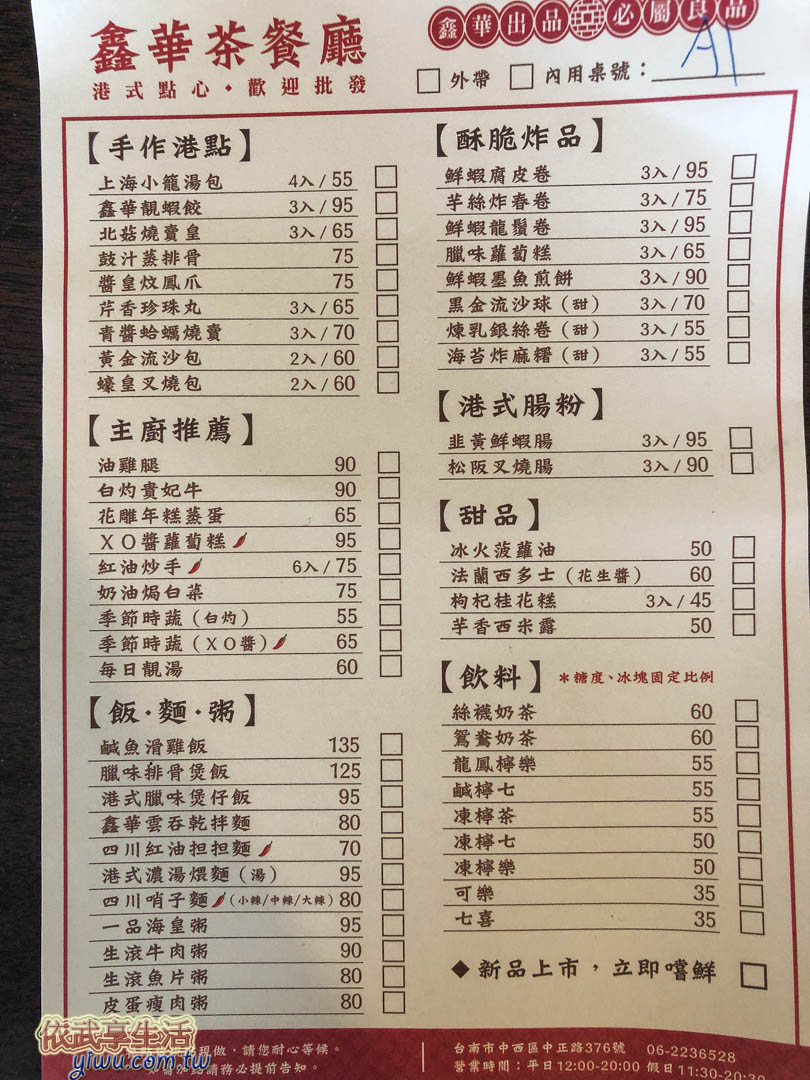 鑫華茶餐廳
港式點心・歡迎批發
鑫華出品 囍 必屬良品
外帶 內用桌號：A1
【手作港點】
上海小籠湯包 4入/55
鑫華靚蝦餃 3入/95
北菇燒賣皇 3入/65
鼓汁蒸排骨 75
醬皇炆鳳爪 75
芹香珍珠丸 3入/65
青醬蛤蠣燒賣 3入/70
黃金流沙包 2入/60
蠔皇叉燒包 2入/60
【主廚推薦】
油雞腿 90
白灼貴妃牛 90
花雕年糕蒸蛋 65
XO醬蘿蔔糕 95
紅油炒手 6入/75
奶油焗白菜 75
季節時蔬（白灼） 55
季節時蔬（XO醬） 65
每日靚湯 60
【飯・麵・粥】
鹹魚滑雞飯 135
臘味排骨煲飯 125
港式臘味煲仔飯 95
鑫華雲吞乾拌麵 80
四川紅油担担麵 70
港式濃湯煨麵（湯） 95
四川哨子麵（小辣/中辣/大辣） 80
一品海皇粥 95
生滾牛肉粥 90
生滾魚片粥 80
皮蛋瘦肉粥 80
【酥脆炸品】
鮮蝦腐皮卷 3入/95
芋絲炸春卷 3入/75
鮮蝦龍鬚卷 3入/95
臘味蘿蔔糕 3入/65
鮮蝦墨魚煎餅 3入/90
黑金流沙球（甜） 3入/70
煉乳銀絲卷（甜） 3入/55
海苔炸麻糬（甜） 3入/55
【港式腸粉】
韭黃鮮蝦腸 3入/95
松阪叉燒腸 3入/90
【甜品】
冰火菠蘿油 50
法蘭西多士（花生醬） 60
枸杞桂花糕 3入/45
芋香西米露 50
【飲料】 *糖度、冰塊固定比例
絲襪奶茶 60
鴛鴦奶茶 60
龍鳳檸樂 55
鹹檸七 55
凍檸茶 55
凍檸七 50
凍檸樂 50
可樂 35
七喜 35
◆新品上市，立即嚐鮮
現做，請您耐心等候。
點請務必提前告知。
台南市中西區中正路376號 06-2236528
營業時間：平日12:00-20:00 假日11:30-20:30
依武享生活
yiwu.com.tw